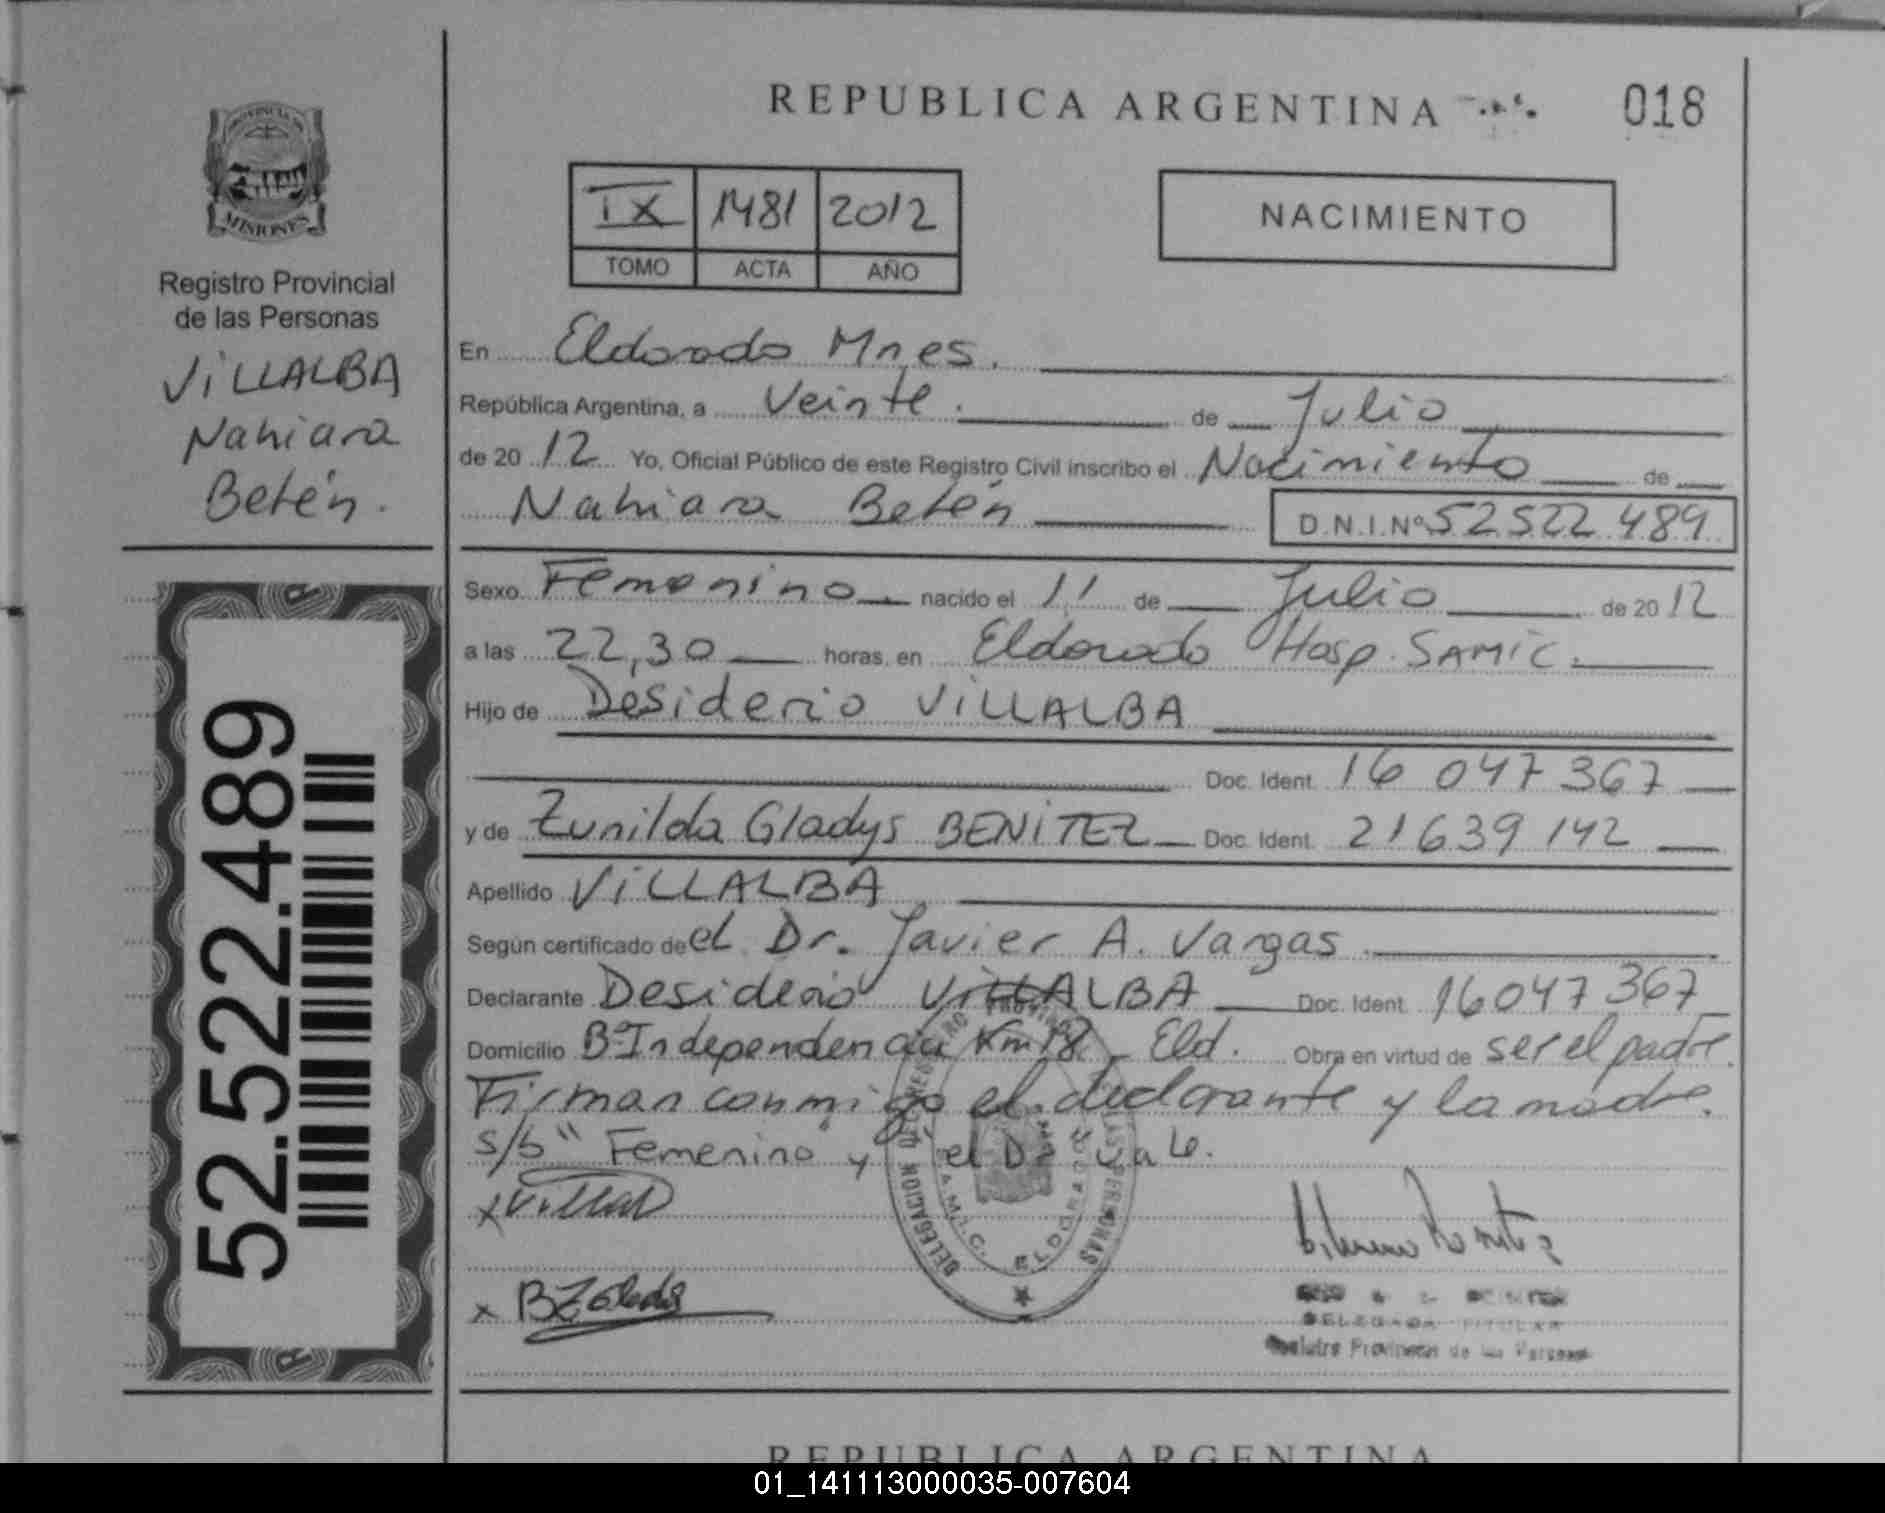 REPUBLICA ARGENTINA
018
PROVINCIA DE
MISIONES
Registro Provincial
de las Personas
VILLALBA
Nahiara
Belén.
52.522.489
IX 1481 2012
TOMO ACTA AÑO
NACIMIENTO
En Eldorado Mnes.
República Argentina, a Veinte. de Julio
de 2012 Yo, Oficial Público de este Registro Civil inscribo el Nacimiento de
Nahiara Belén D.N.I.Nº 52 522 489
Sexo Femenino nacido el 11 de Julio de 2012
a las 22,30 horas, en Eldorado Hosp. SAMIC.
Hijo de Desiderio VILLALBA
Doc. Ident. 16 047 367
y de Zunilda Gladys BENITEZ Doc. Ident. 21639 142
Apellido VILLALBA
Según certificado de el Dr. Javier A. Vargas
Declarante Desiderio VILLALBA Doc. Ident. 16047 367
Domicilio Bº Independencia Km 18 - Eld. Obra en virtud de ser el padre.
Firman conmigo el declarante y la madre.
s/b "Femenino" y el D vale.
DELEGACION
S.A.M.I.C. ELDORADO
DE LAS PERSONAS
DELEGADA TITULAR
Registro Provincial de las Personas
REPUBLICA ARGENTINA
01_141113000035-007604